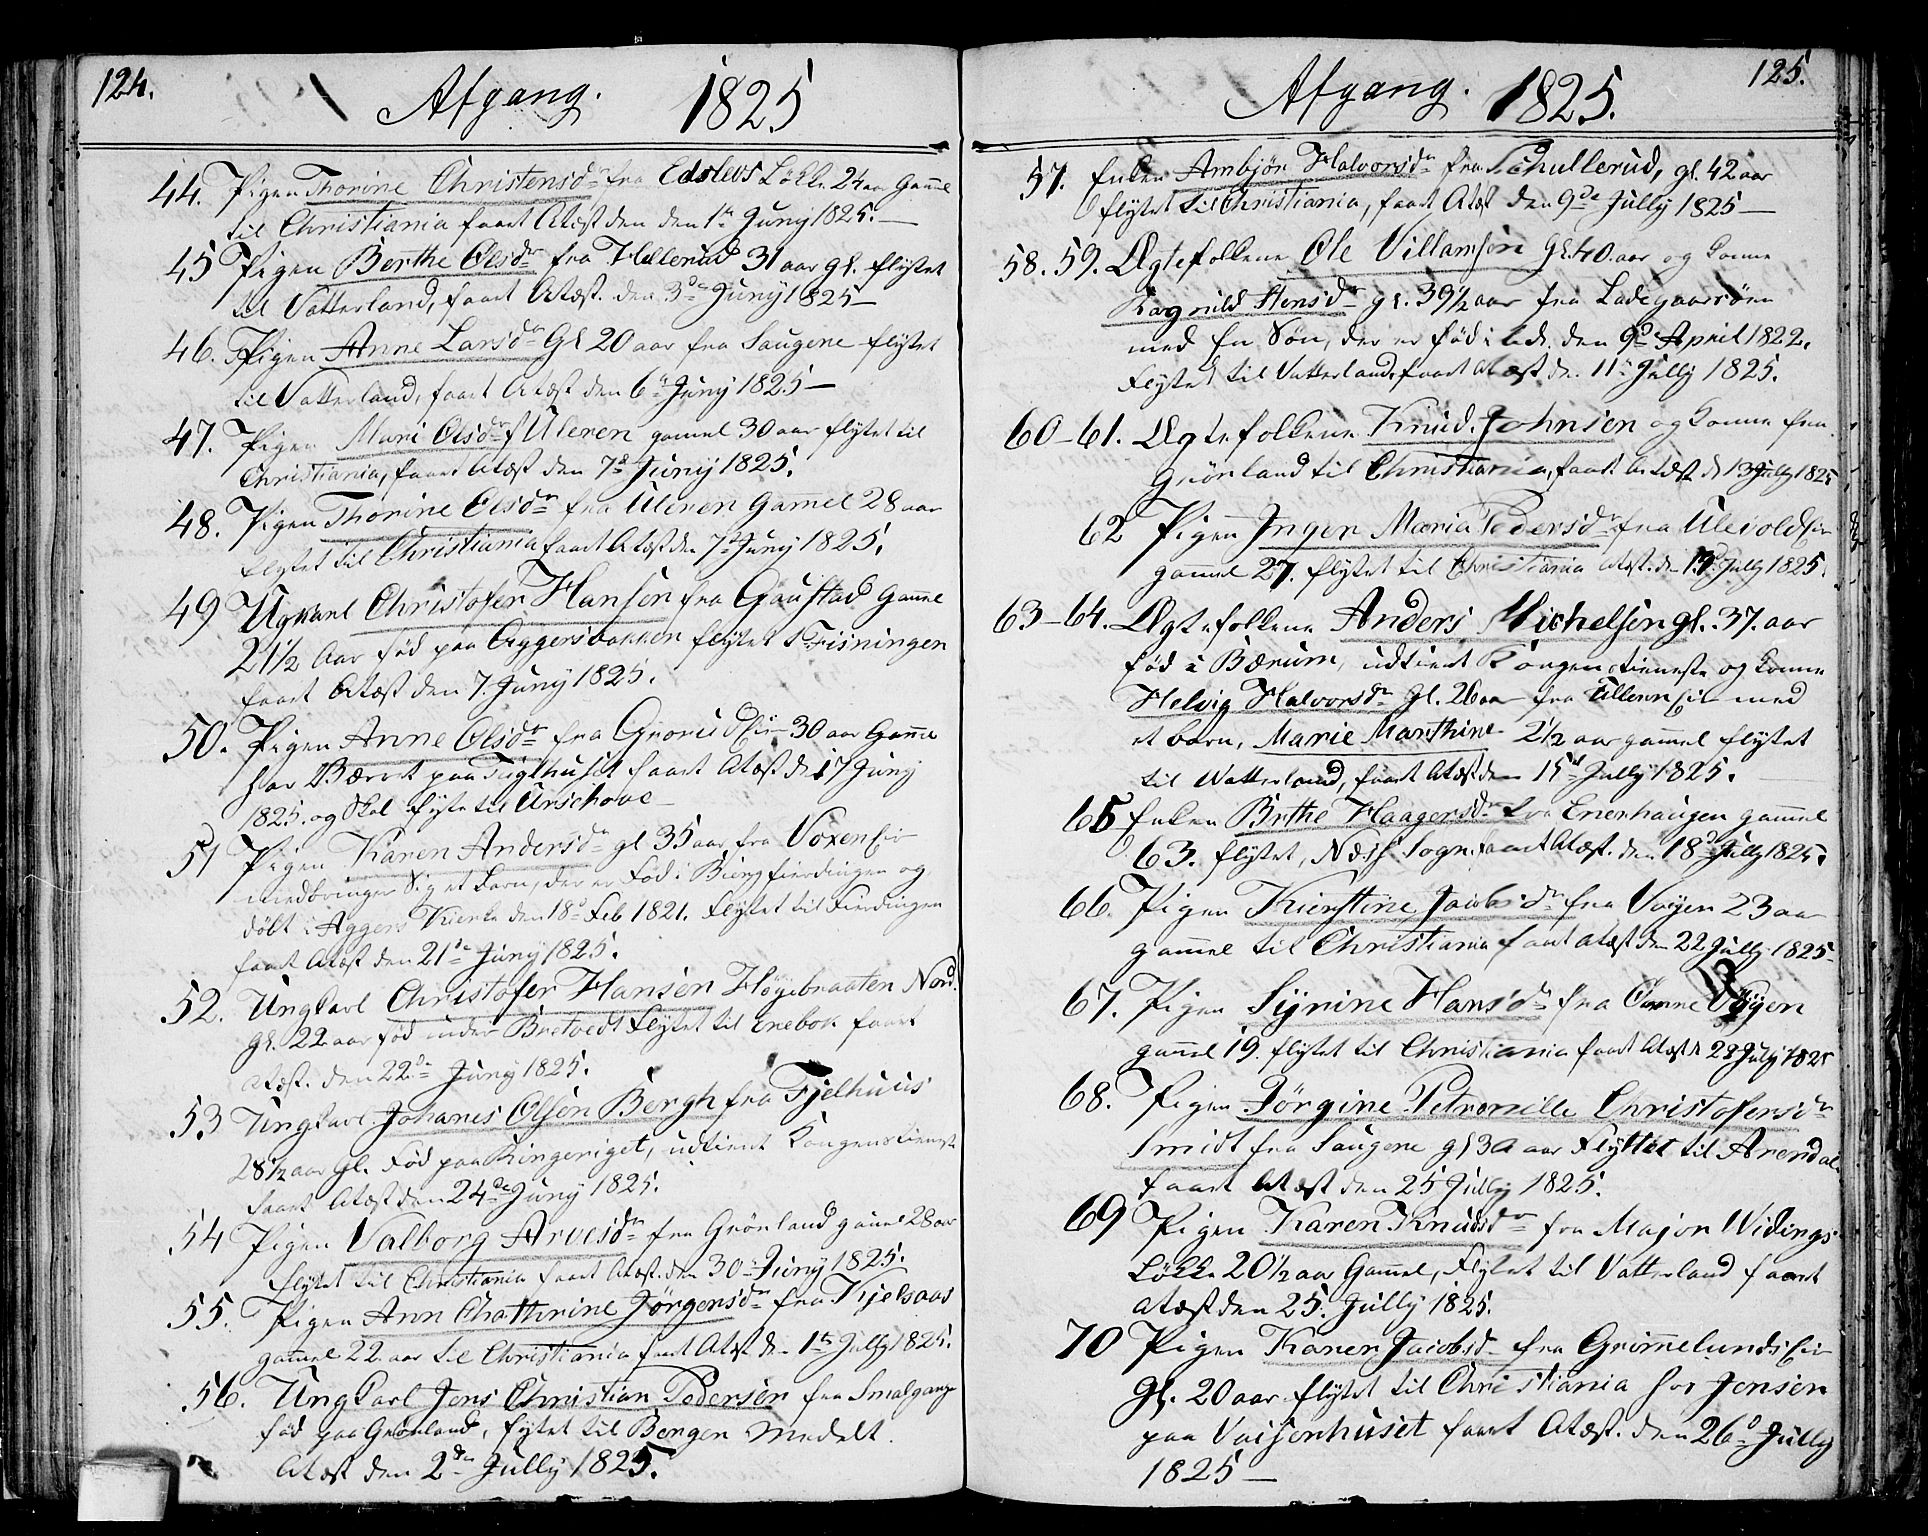 124.
Afgang. 1825
44. Pigen Thorine Christensdr fra Edslevs Løkke 24 aar Gamel
til Christiania faaet Atæst den den 1te Juny 1825. —
45 Pigen Berthe Olsdr fra Hellerud 31 aar gl. flytet
til Vatterland, faaet Atæst. den 3de Juny 1825 —
46. Pigen Anne Larsdr Gl 20 aar fra Saugene flytet
til Vatterland, faaet Atæst den 6te Juny 1825 —
47. Pigen Mari Olsdr f Uleren gamel 30 aar flytet til
Christiania, faaet Atæst den 7d Juny 1825.
48. Pigen Thorine Olsdr fra Uleren Gamel 28 aar
flytet til Christiania faaet Atæst den 7d Juny 1825.
49 Ugkarl Christofer Hansen fra Gaustad Gamel
21½ Aar fød paa Aggersbakken flytet
faaet Atæst den 7. Juny 1825.
50. Pigen Anne Olsdr fra Grorud Eie 30 aar Gamel
har Været paa Tugthuset faaet Atæst de 17 Juny
1825. og Skal flyte til Urschove —
51 Pigen Karen Andersdr gl 35 aar fra Voxen Eie
medbringer Sig et Barn, der er Fød i Bierg fierdingen og
døbt i Aggers Kierke den 18d Feb 1821. Flytet til Fierdingen
faaet Atæst den 21de Juny 1825.
52. UngKarl Christofer Hansen Høgebraaten Nord.
gl. 22 aar fød under Bretvedt Flytet til Enebok faaet
Atæst. den 22de Juny 1825.
53 UngKarl Johanes Olsen Bergh fra Fjelhuus
28½ aar Gl. Fød paa Ringeriget, udtient Kongens tieneste
faaet Atæst den 24de Juny 1825.
54 Pigen Valborg Arvesdr fra Grönland gamel 28 aar
flytet til Christiania faaet Atæst. den 30te Juny 1825.
55. Pigen Ann Chathrine Jörgensdr fra Kjelsaas
gammel 22 aar til Christiania faaet Atæst de 1te Jully 1825.
56. UngKarl Jens Christian Pedersen fra Smalgange
fød paa Grønland, flytet til Bergen Medelt.
Atæst den 2den Jully 1825.
125.
Afgang. 1825.
57. Enken Ambjør Halvorsdr fra Schullerud, gl. 42 aar
flytet til Christiania, faaet Atæst den 9de Jully 1825 —
58. 59. Ægtefolkene Ole Villamsøn Gl 40. aar og Kone
Ragnild Stensdr gl. 39½ aar fra Ladegaarsöen
med En Søn, der er fød i den 9d April 1822.
Flytet til Vatterland, faaet Atæst de. 11te Jully 1825.
60–61. Ægtefolkene Knud. Johnsen og Kone fra
Grönland til Christiania, faaet Atæst d 13 Jully 1825
62 Pigen Inger Maria Pedersdr fra Ulevold Eie
gammel 27. flytet til Christiania Atæst. de Jully 1825.
63–64. Ægtefolkene Anders Michelsen gl. 37. aar
fød i Bærum, udtient Kongens tieneste og Kone
Helvig Halvorsdr Gl. 26 aar fra Ulleren Eie med
et barn, Marie Marthine 2½ aar gammel flytet
til Vatterland, faaet Atæst den 15d Jully 1825.
65 Enken Brthe Haagersdr fra Enerhaugen gammel
63. flytet, Næss Sogn faaet Atæst. den 18de Jully 1825.
66. Pigen Kierstine Jacobsdr fra Voyen 23 aar
gammel til Christiania faaet Atæst den 22 Jully 1825
67. Pigen Syrine Hansdr fra Vøyen
gamel 19. flytet til Christiania faaet Atæst d 28 July 1825
68. Pigen Jörgine Petronille Christofersdr
Smidt fra Saugene gl 30 aar Flyttet til Arendal
faaet Atæst den 25 Jully 1825.
69 Pigen Karen Knudsdr fra Major Widings
Løkke 20½ aar Gammel, Flytet til Vatterland faaet
Atæst den 25. Jully 1825.
70 Pigen Karen Jacobsd fra Grimelunds Eie
gl. 20 aar flytet til Christiania hos Jensen
paa Vaisenhuset faaet Atæst. den 26d Jully
1825 —